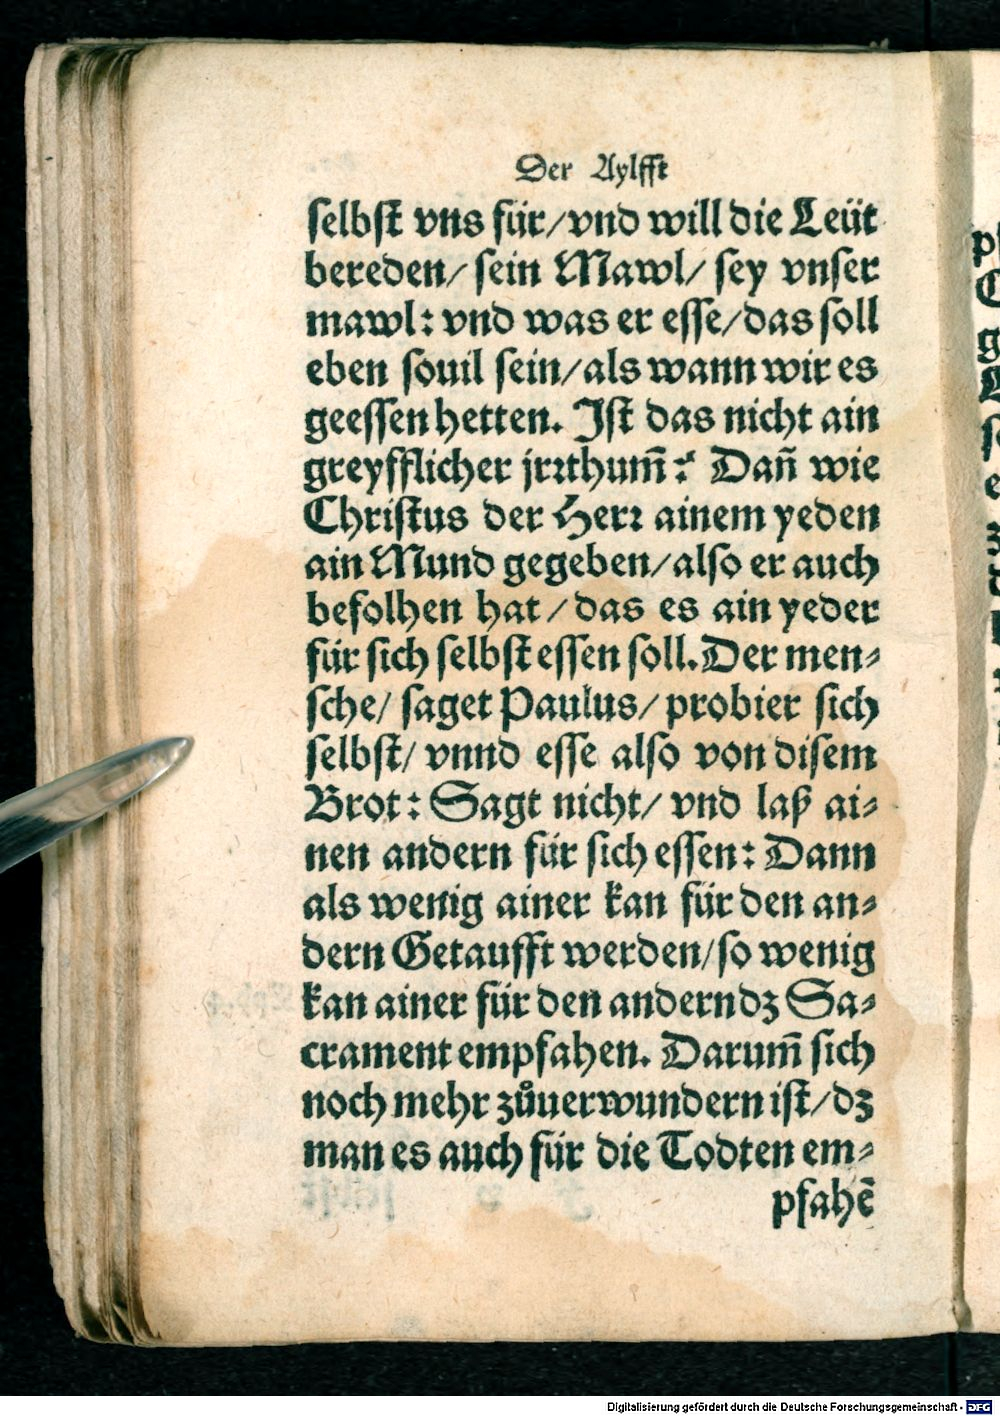 Der Aylfft
selbst vns für/vnd will die Leüt
bereden/ sein Mawl/ sey vnser
mawl: vnd was er esse/das soll
eben souil sein/als wann wir es
geessen hetten. Ist das nicht ain
greyfflicher jrꝛthum̃? Dañ wie
Christus der Herꝛ ainem yeden
ain Mund gegeben/also er auch
befolhen hat/das es ain yeder
für sich selbst essen soll. Der men⸗
sche/ saget Paulus/ probier sich
selbst/ vnnd esse also von disem
Brot: Sagt nicht/ vnd laß ai⸗
nen andern für sich essen: Dann
als wenig ainer kan für den an⸗
dern Getaufft werden/so wenig
kan ainer für den andern dz Sa⸗
crament empfahen. Darum̃ sich
noch mehr zůuerwundern ist/dz
man es auch für die Todten em⸗
pfahẽ
Digitalisierung gefördert durch die Deutsche Forschungsgemeinschaft - DFG